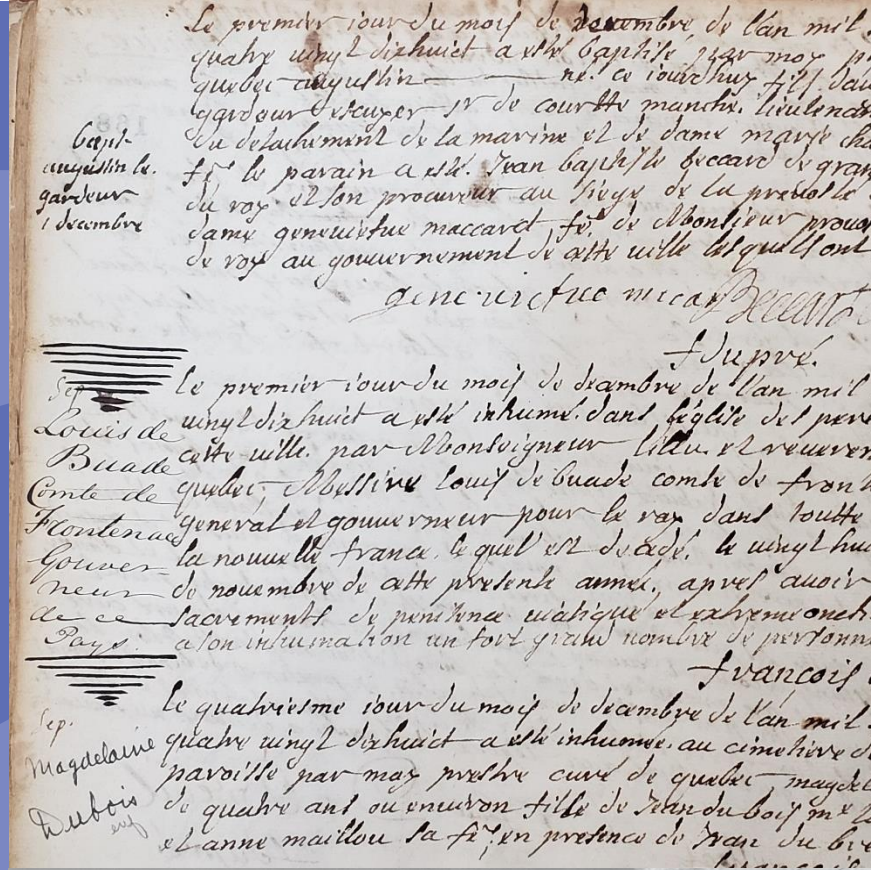 Le premier iour du mois de decembre de l'an mil
quatre vingt dixhuict a esté baptisé par moy
quebec augustin ne ce iourdhuy fils
gardeur escuyer Sr de courtte manche. lieutenan
du detachement de la marine et de dame marye cha
fe le parain a esté. Jean baptiste beccard de gran
du roy et son procureur au siege de la prevosté
dame geneviefue maccard fe. de Monsieur provo
de roy au gouvernement de cette ville lesquels ont
Bapt-
augustin le.
gardeur
1 decembre
geneuiefue macar Beccard
f dupré.
Sep
Louis de
Buade
Comte de
Frontenac
Gouver
neur
de ce
Pays.
le premier iour du mois de decembre de l'an mil
vingt dixhuict a esté inhumé. dans l'église des pere
cette ville. par Monseigneur l'illu. et reueren
quebec, Messire louis de buade comte de front
general et gouverneur pour le roy dans toutte
la nouvelle france. lequel est decedé. le vingt hui
de novembre de cette presente année, apres auoir
sacrements de penitence viatique et extreme oncti
a son inhumation un fort grand nombre de personn
françois
Sep.
Magdelaine
Dubois
le quatriesme iour du mois de decembre de l'an mil
quatre vingt dixhuict a esté inhumée. au cimetiere d
paroisse par moy prestre curé de quebec, magdel
de quatre ans ou environ fille de Jean du bois me
et anne maillou sa fe, en presence de Jean du bre